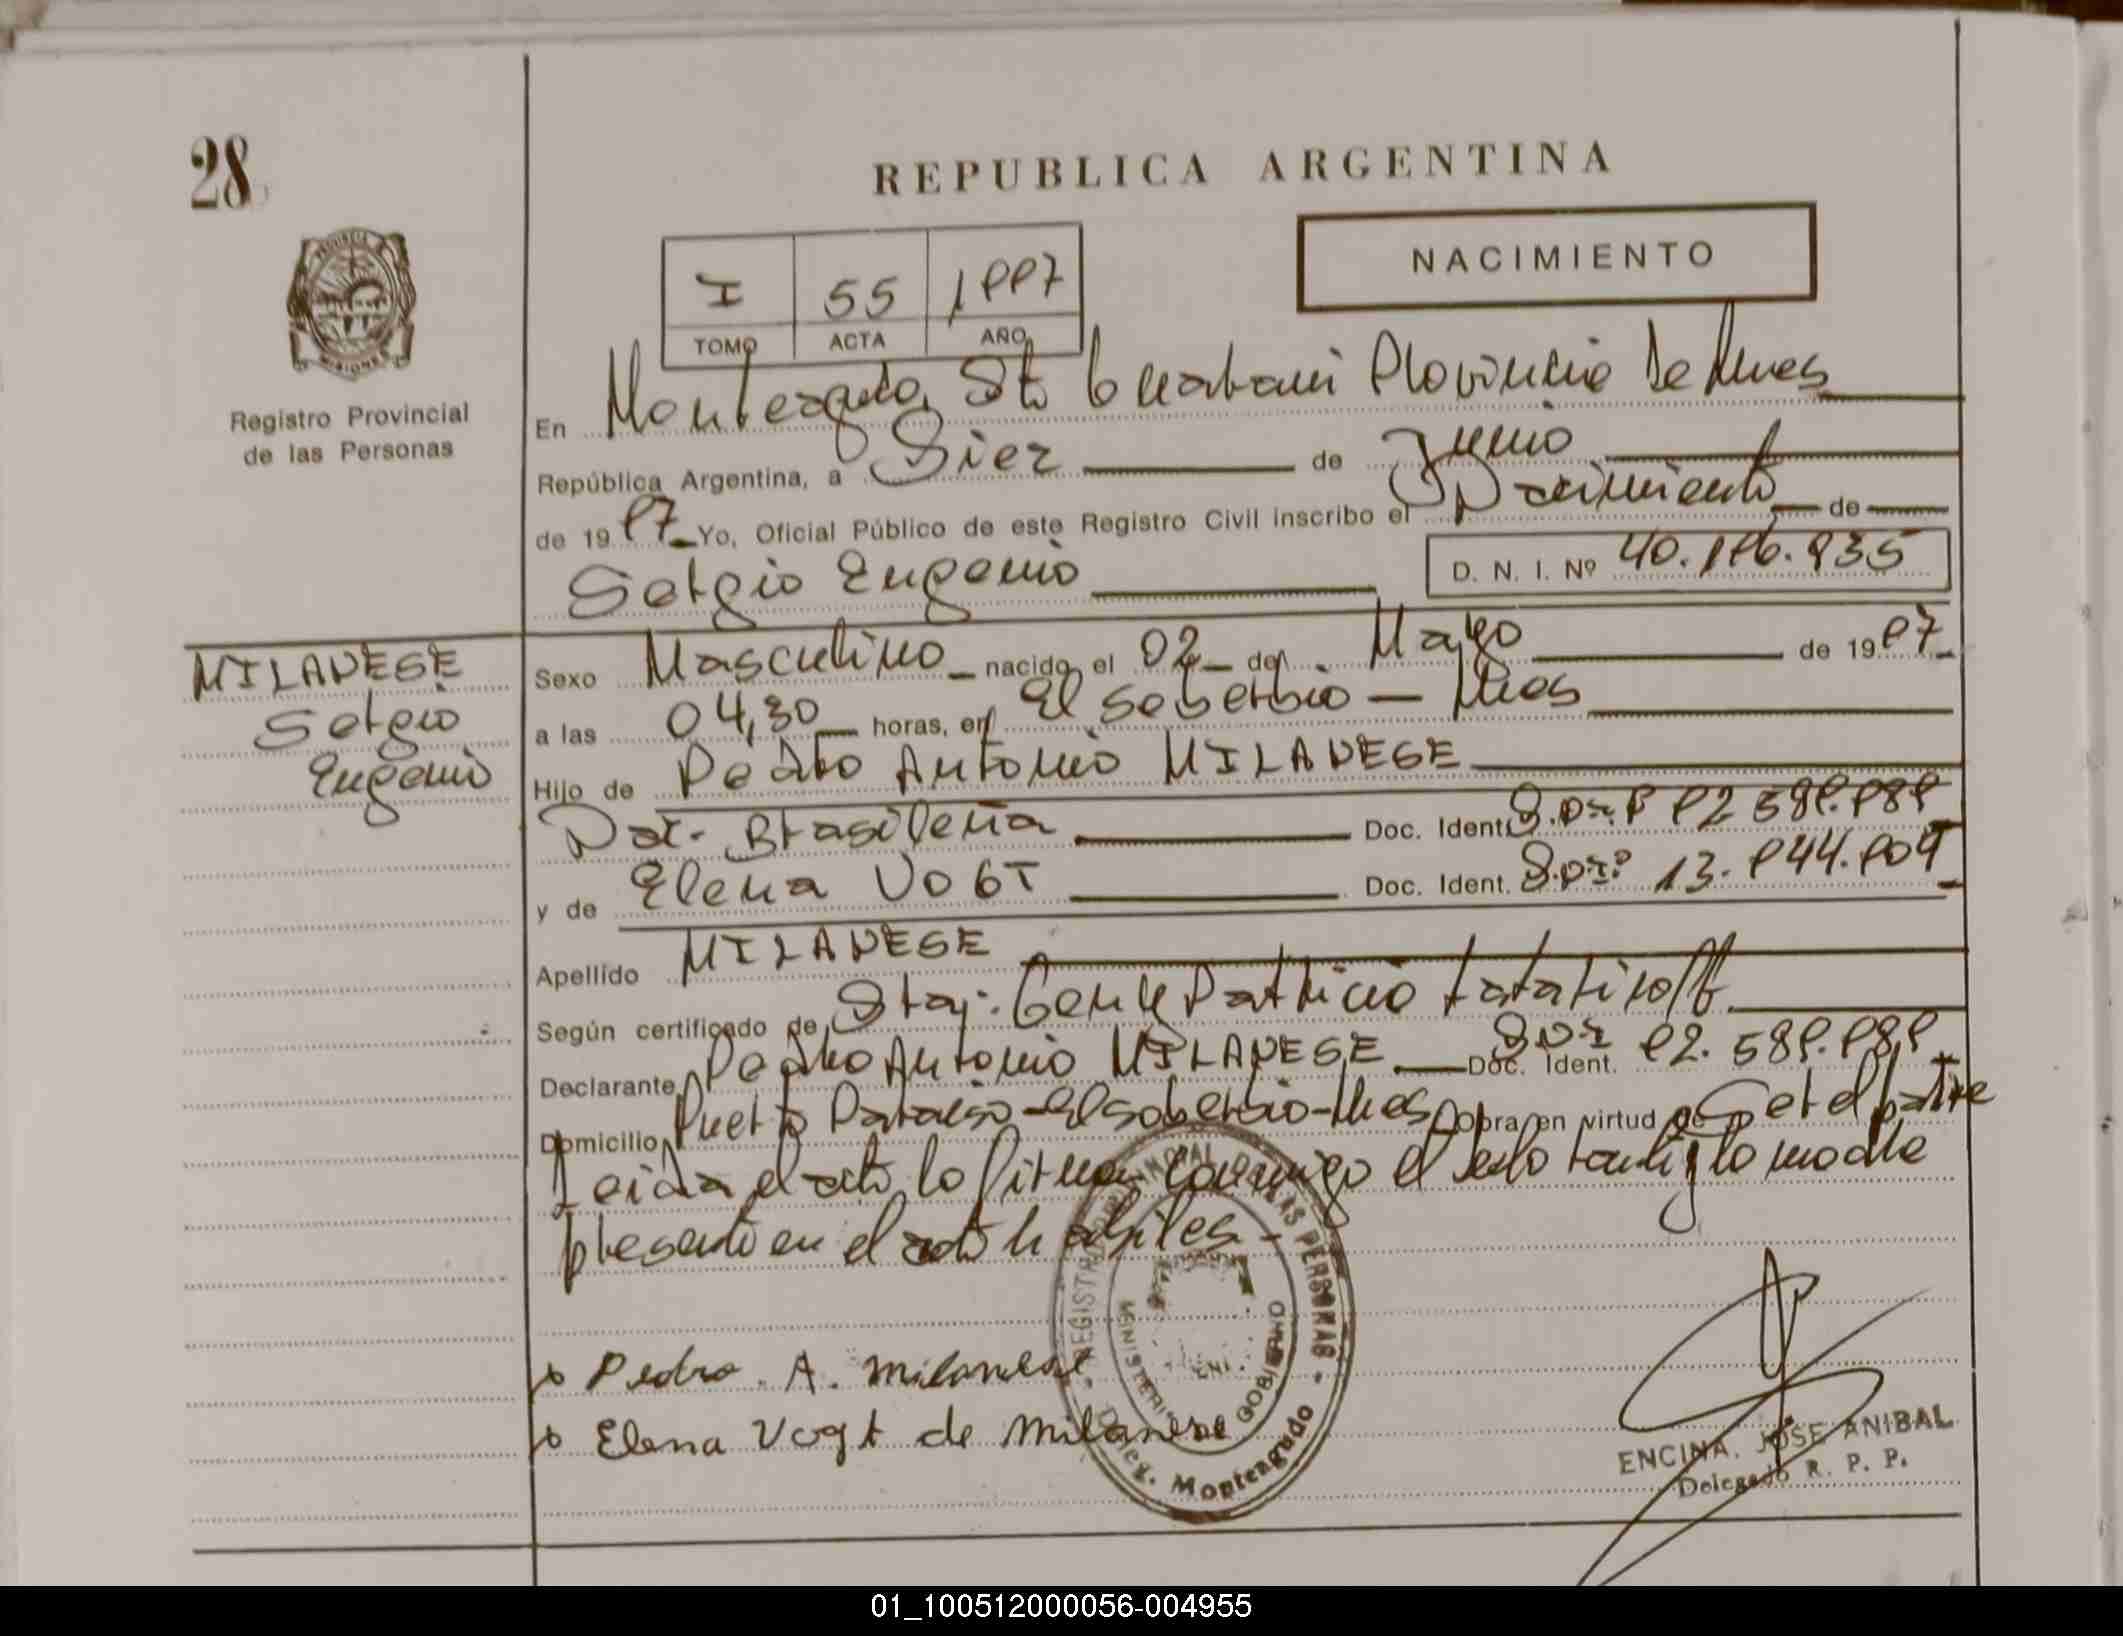 28
REPUBLICA ARGENTINA
NACIMIENTO
I 55 1997
TOMO ACTA AÑO
PROVINCIA DE MISIONES
Registro Provincial
de las Personas
En Monteagudo, Dto Guaraní Provincia de Mnes
República Argentina, a Diez de Junio
de 1997 Yo, Oficial Público de este Registro Civil inscribo el Nacimiento de
Sergio Eugenio D. N. I. Nº 40.196.935
MILANESE
Sergio
Eugenio
Sexo Masculino nacido el 02 de Mayo de 1997
a las 04,30 horas, en El Soberbio - Mnes
Hijo de Pedro Antonio MILANESE
Nac. Brasileña Doc. Ident. D.N.I. Nº 92.589.989
y de Elena VOGT Doc. Ident. D.N.I. 13.944.909
Apellido MILANESE
Según certificado de Patricio
Declarante Pedro Antonio MILANESE Doc. Ident. D.N.I. 92.589.989
Domicilio Puerto Paraíso - El Soberbio - Mnes Obra en virtud de Ser el padre
Leida el acta la firman conmigo el y la madre
presente en el acto habiles -
Pedro A. Milanese
Elena Vogt de Milanese
REGISTRO PROVINCIAL DE LAS PERSONAS
MINISTERIO GOBIERNO
Deleg. Monteagudo
ENCINA, JOSE ANIBAL
Delegado R. P. P.
01_100512000056-004955